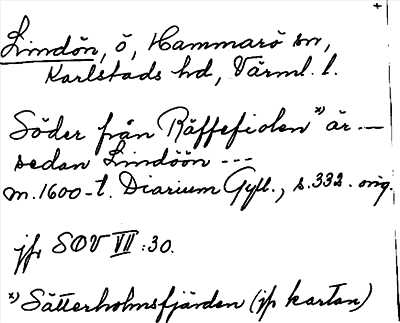 Lindön, ö, Hammarö sn,
Karlstads hd, Värml. l.
Söder från Räffefiolen *) är —
sedan Lindöön ---
m. 1600-t. Diarium Gyll., s. 332. orig.
jfr SOV VII : 30.
*) Sätterholmsfjärden (jfr kartan)